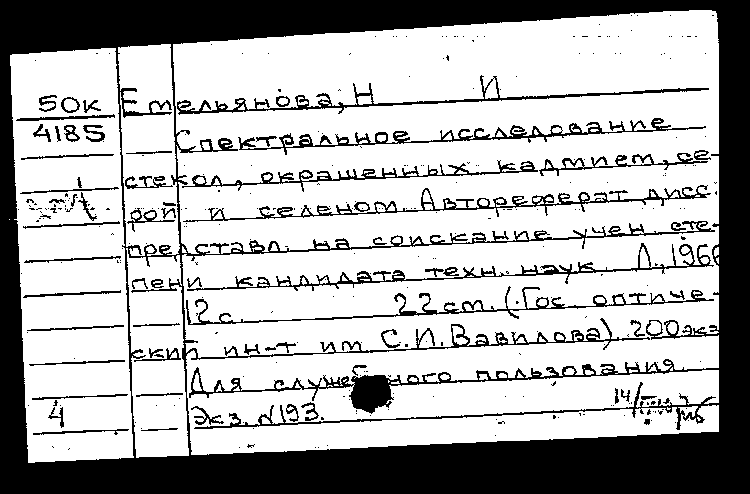 50к Емельянова, Н И
4185 Спектральное исследование
стекол, окрашенных кадмием, се-
рой и селеном. Автореферат дисс.
представл. на соискание учен сте-
пени кандидата техн. наук Л., 1966
12 с. 22 см. (Гос. оптиче-
ский ин-т им. С.И. Вавилова) 200 экз
Для служебного пользования
4 Экз. №193. 14/